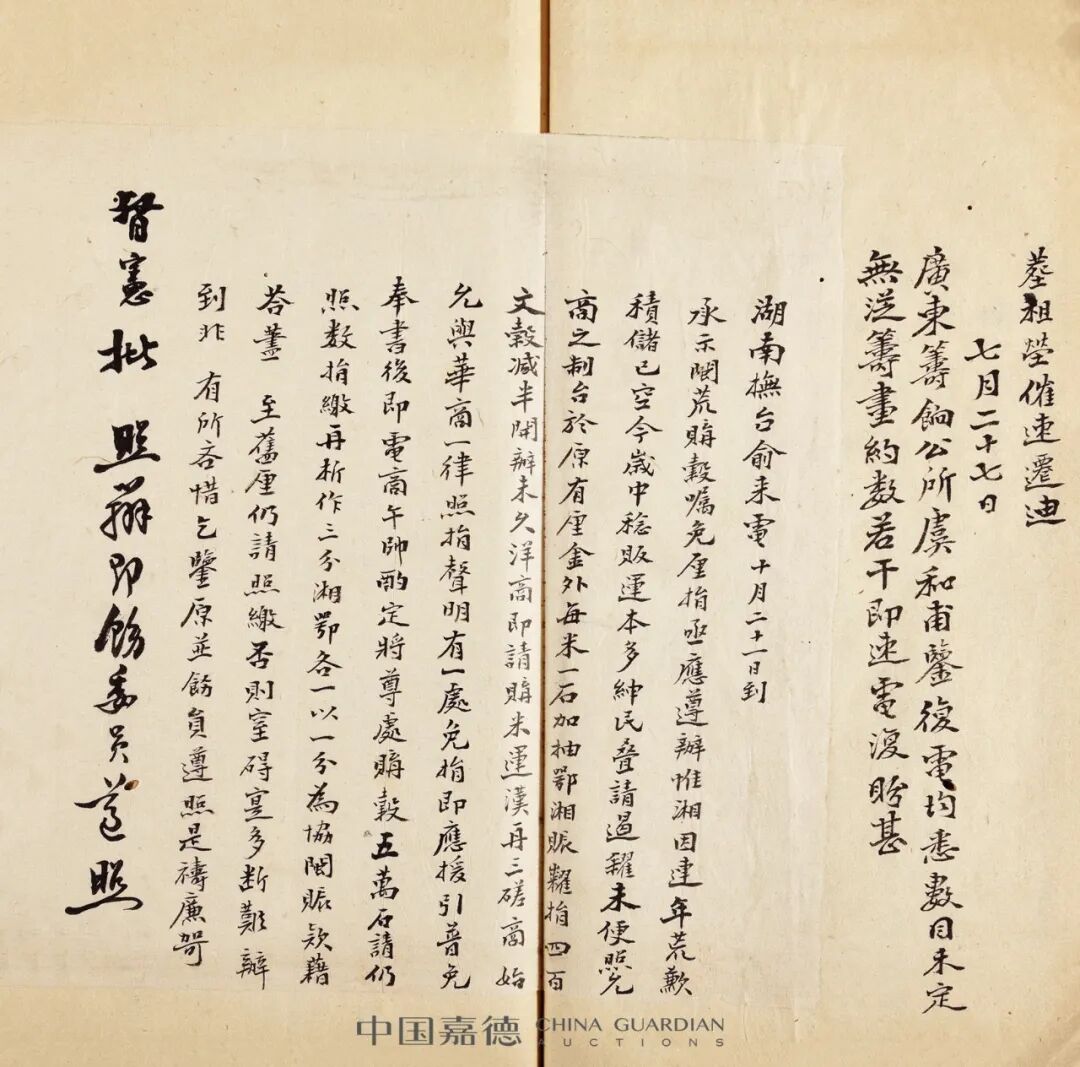 墓祖塋催速遷迪
七月二十七日
廣東籌餉公所虞和甫鑒復電均悉數目未定
無從籌畫約数若干即速電復盼甚
湖南撫台俞来電十月二十一日到
承示閩荒購穀囑免厘捐亟應遵辦惟湘因連年荒歉
積儲已空今嵗中稔販運本多紳民叠請遏糴未便照允
商之制台於原有厘金外每米一石加抽鄂湘賑糶捐四百
文穀减半開辦未久洋商即請購米運漢再三磋商始
允與華商一律照捐聲明有一處免捐即應援引普免
奉書後即電商午帥酌定將尊處購穀五萬石請仍
照数捐繳再析作三分湘鄂各一以一分為協閩賑欵藉
荅藎 至舊厘仍請照繳否則窒碍寔多断難辦
到非 有所吝惜乞鑒原並飭員遵照是禱廉哿
督憲批 照辦即飭委員遵照
中国嘉德 CHINA GUARDIAN AUCTIONS